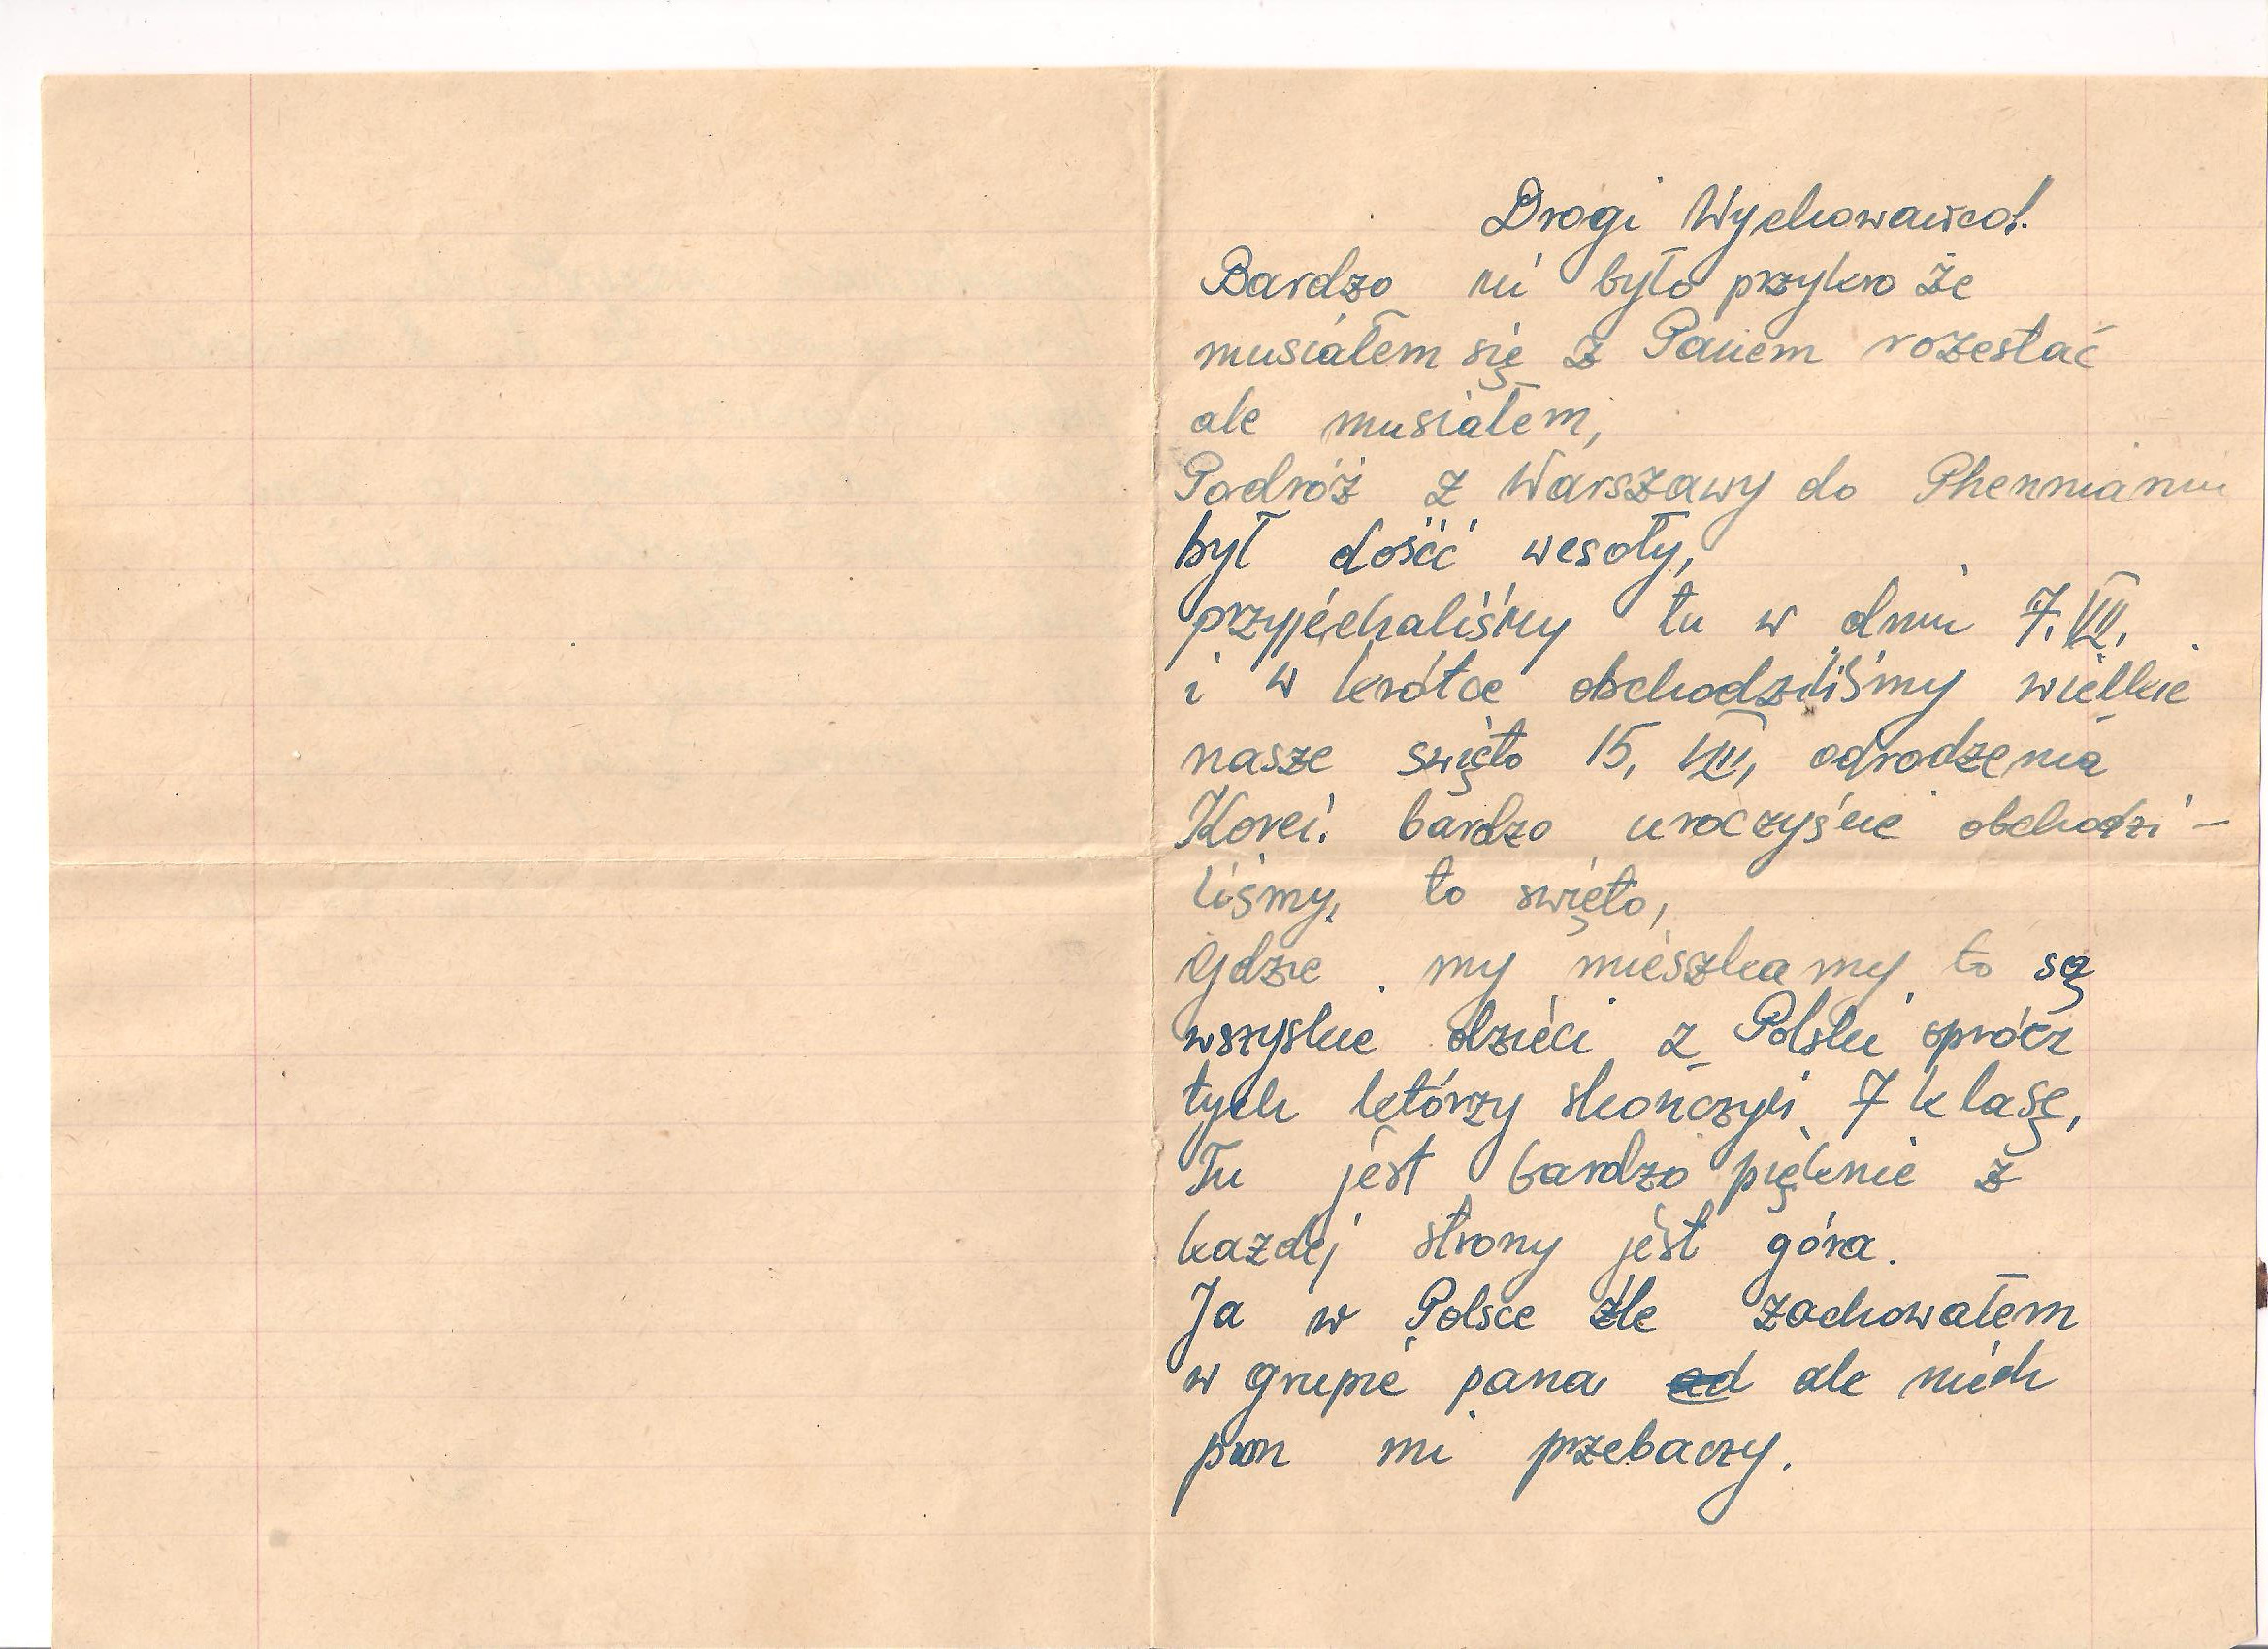 Drogi Wychowawco!
Bardzo mi było przykro że
musiałem się z Panem rozestać
ale musiałem,
Podróż z Warszawy do Phennianiu
był dość wesoły,
przyjechaliśmy tu w dniu 7. VII.
i w krótce obchodziliśmy wielkie
nasze święto 15, VIII, odrodzenia
Korei. bardzo uroczyście obchodzi-
liśmy, to swięto,
Gdzie my mieszkamy to są
wszyskie dzieci z Polski oprócz
tych którzy skończyli 7 klasę,
Tu jest bardzo pięknie z
kazdej strony jest góra.
Ja w Polsce źle zachowałem
w grupie pana ale niech
pan mi przebaczy.